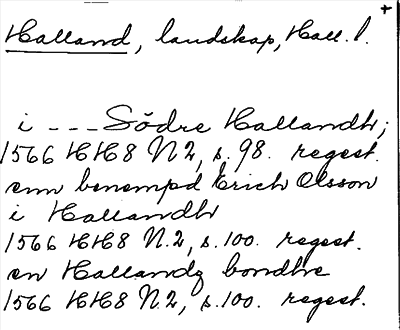 +
Halland, landskap, Hall. l.
i --- Södre Hallandh;
1566 HH8 N 2, s. 98. regest.
enn benempd Erich Olsson
i Hallandh
1566 HH8 N. 2, s. 100. regest.
en Hallandz bondhe
1566 HH8 N. 2, s. 100. regest.